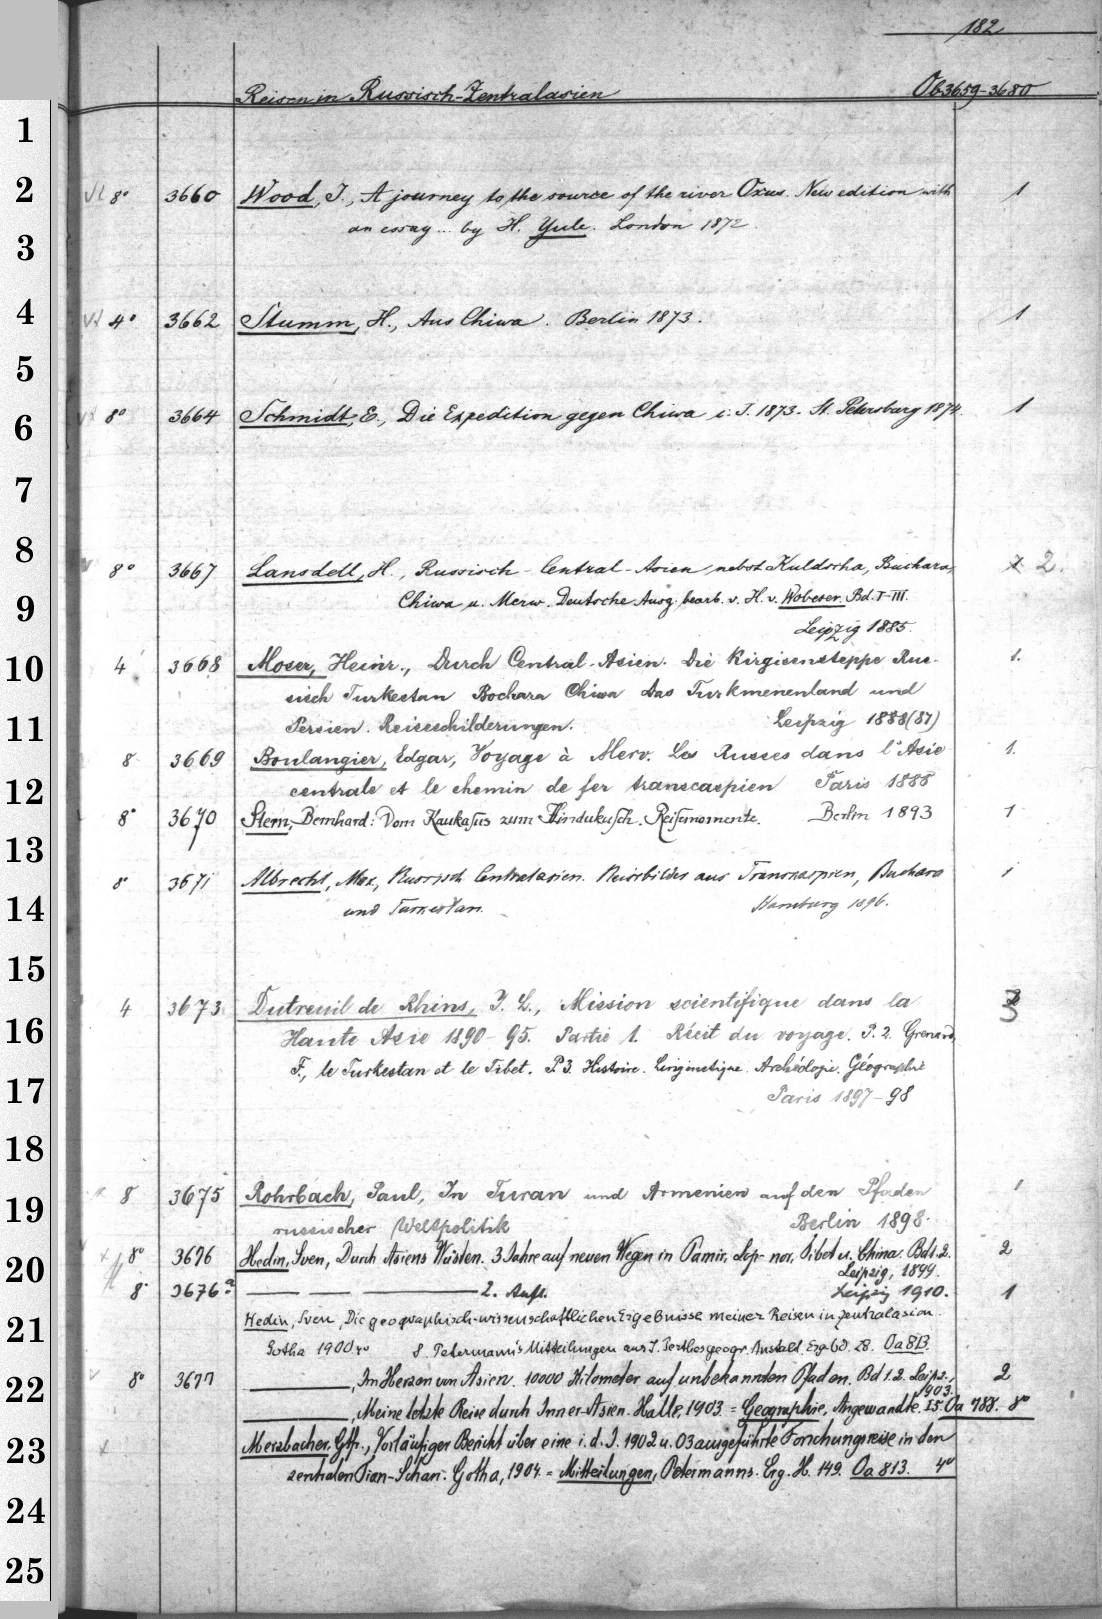 182
Reisen in Russisch-Zentralasien Ob 3659-3680
1
2 8° 3660 Wood, J., A journey to the source of the river Oxus. New edition with 1
an essay ... by H. Yule. London 1872.
3
4 4° 3662 Stumm, H., Aus Chiwa. Berlin 1873. 1
5
6 8° 3664 Schmidt, E., Die Expedition gegen Chiwa i. J. 1873. St. Petersburg 1874. 1
7
8 8° 3667 Lansdell, H., Russisch-Central-Asien nebst Kuldscha, Buchara, 2.
9 Chiwa u. Merw. Deutsche Ausg. bearb. v. H. v. Wobeser. Bd. I-III.
Leipzig 1885.
10 4 3668 Moser, Heinr., Durch Central-Asien. Die Kirgisensteppe Rus- 1.
sisch Turkestan Bochara Chiwa Das Turkmenenland und
11 Persien. Reiseschilderungen. Leipzig 1888(87)
8 3669 Boulangier, Edgar, Voyage à Merv. Les Russes dans l'Asie 1.
12 centrale et le chemin de fer transcaspien Paris 1888
8° 3670 Stern, Bernhard: Vom Kaukasus zum Hindukusch. Reisemomente. Berlin 1893 1
13
8° 3671 Albrecht, Max, Russisch Centralasien. Reisebilder aus Transkaspien, Buchara 1
14 und Turkestan. Hamburg 1896.
15
4 3673 Dutreuil de Rhins, J. L., Mission scientifique dans la 3
16 Haute Asie 1890-95. Partie 1. Récit du voyage. P. 2. Grenard,
F., le Turkestan et le Tibet. P 3. Histoire. Linguistique. Archéologie. Géographie
17 Paris 1897-98
18
8 3675 Rohrbach, Paul, In Turan und Armenien auf den Pfaden 1
19 russischer Weltpolitik Berlin 1898.
8° 3676 Hedin, Sven, Durch Asiens Wüsten. 3 Jahre auf neuen Wegen in Pamir, Lop-nor, Tibet u. China. Bd 1.2. 2
20 Leipzig, 1899.
8° 3676a — — — 2. Aufl. Leipzig 1910. 1
Hedin, Sven, Die geographisch-wissenschaftlichen Ergebnisse meiner Reisen in Zentralasien.
21 Gotha 1900 4° Petermann's Mitteilungen aus J. Perthes geogr. Anstalt. Erg. bd. 28. Oa 813.
8° 3677 —, Im Herzen von Asien. 10000 Kilometer auf unbekannten Pfaden. Bd 1.2. Leipz., 2
22 1903.
—, Meine letzte Reise durch Inner-Asien. Halle, 1903 = Geographie, Angewandte. I 5. Oa 788. 8°
Merzbacher, Gtfr., Vorläufiger Bericht über eine i. d. J. 1902 u. 03 ausgeführte Forschungsreise in den
23 zentralen Tian-Schan. Gotha, 1904. = Mitteilungen, Petermanns. Erg. H. 149. Oa 813. 4°
24
25